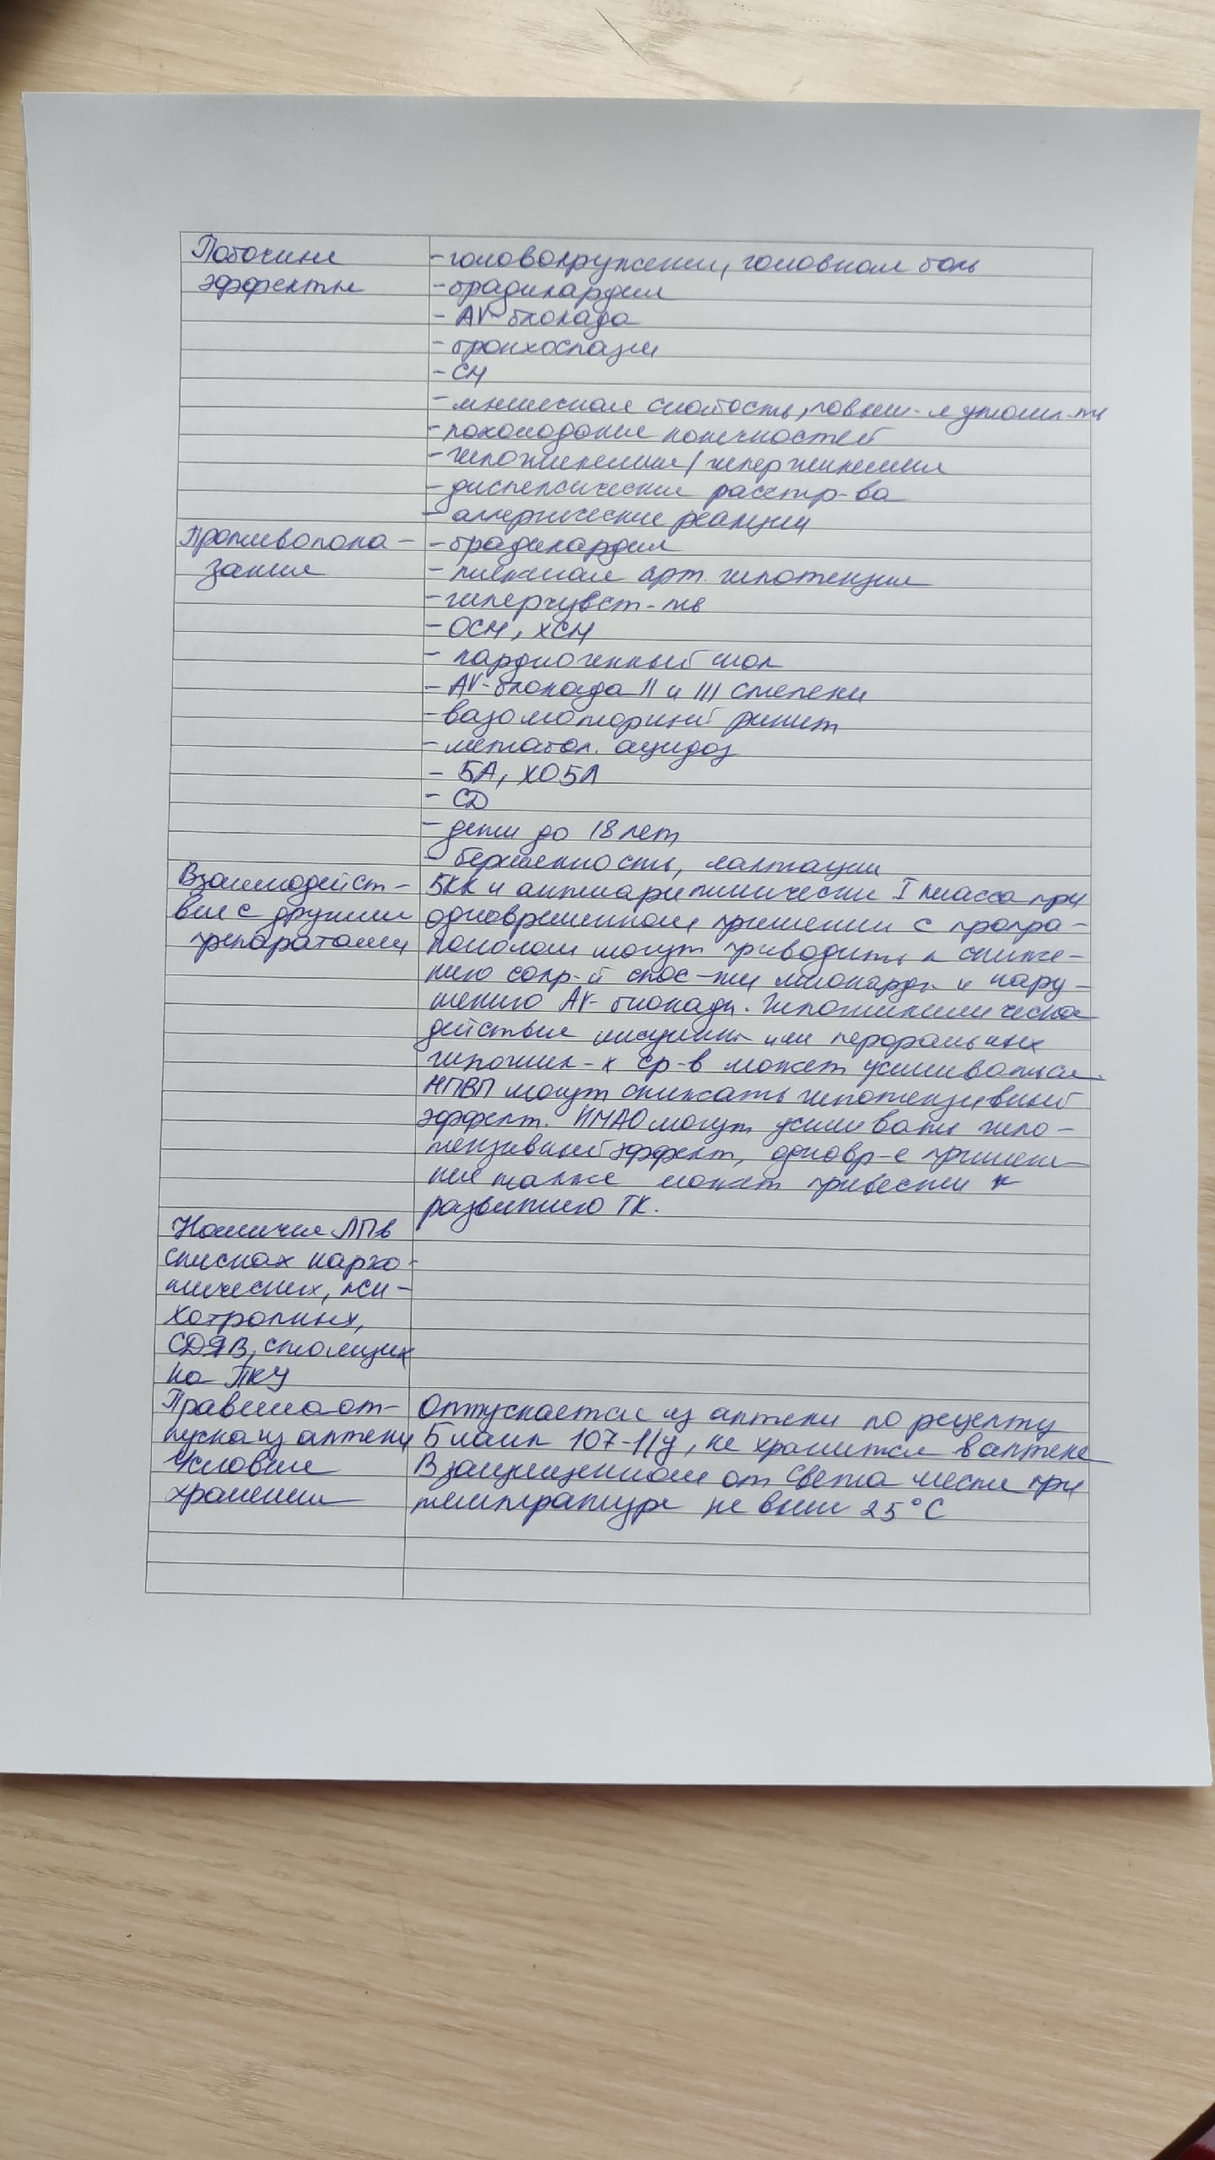 Побочные
эффекты
- головокружение, головная боль
- брадикардия
- AV-блокада
- бронхоспазм
- СН
- мышечная слабость, повыш-я утомл-ть
- похолодание конечностей
- гипогликемия/гипергликемия
- диспепсические расстр-ва
- аллергические реакции
Противопока-
зания
- брадикардия
- тяжелая арт. гипотензия
- гиперчувст-ть
- ОСН, ХСН
- кардиогенный шок
- AV-блокада II и III степени
- вазомоторный ринит
- метабол. ацидоз
- БА, ХОБЛ
- СД
- дети до 18 лет
- беременность, лактация
Взаимодейст-
вие с другими
препаратами
БКК и антиаритмически I класса при
одновременном применении с пропра-
нололом могут приводить к сниже-
нию сокр-й спос-ти миокарда и нару-
шению AV-блокады. Гипогликемическое
действие инсулина или пероральных
гипоглик-х ср-в может усиливаться.
НПВП могут снижать гипотензивный
эффект. ИМАО могут усиливать гипо-
тензивный эффект, одновр-е примене
ние также может привести к
развитию ГК.
Наличие ЛП в
списках нарко-
тических, пси-
хотропных,
СДЯВ, стоящих
на ПКУ
Правила от-
пуска из аптеки
Отпускается из аптеки по рецепту
Бланк 107-1/у, не хранится в аптеке
Условия
хранения
В защищенном от света месте при
температуре не выше 25°С